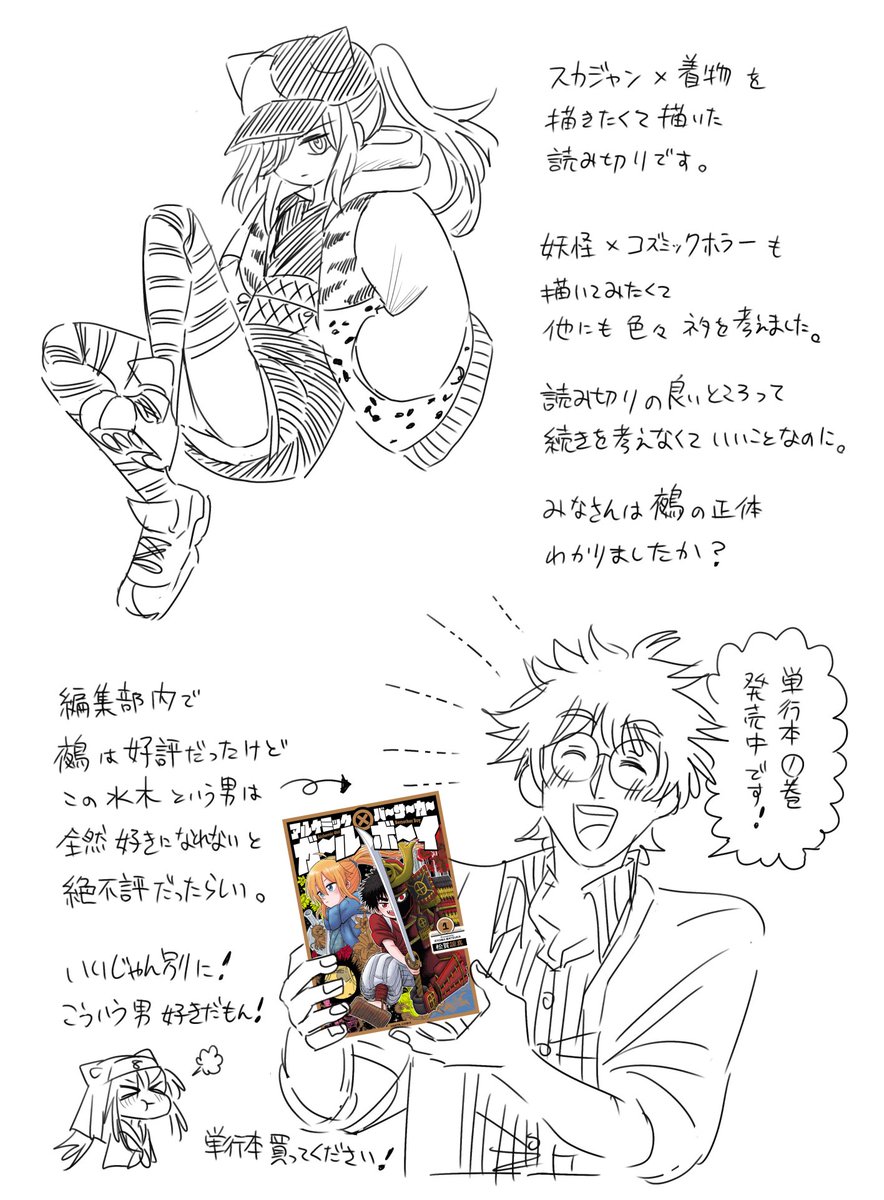 スカジャン×着物を
描きたくて描いた
読み切りです。
妖怪×コズミックホラーも
描いてみたくて
他にも色々ネタを考えました。
読み切りの良いところって
続きを考えなくていいことなのに。
みなさんは鵺の正体
わかりましたか？
単行本①巻
発売中です！
編集部内で
鵺は好評だったけど
この水木という男は
全然好きになれないと
絶不評だったらしい。
いいじゃん別に！
こういう男好きだもん！
アルタミック×バーサーカー
ガールボーイ
1
松賀
単行本買ってください！